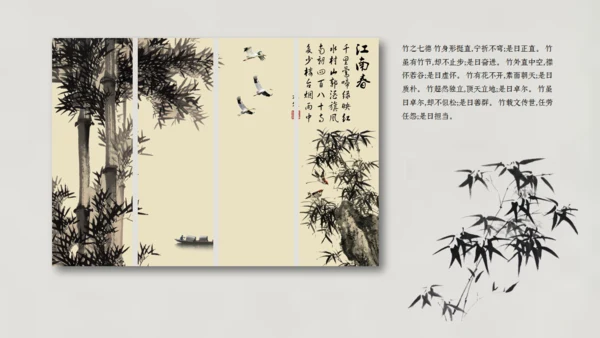 江南春
千里鶯啼绿映红
水村山郭酒旗風
南朝四百八十寺
多少樓台烟雨中
竹之七德 竹身形挺直,宁折不弯;是曰正直。 竹
虽有节竹,却不止步;是曰奋进。 竹外直中空,襟
怀若谷;是曰虚怀。 竹有花不开,素面朝天;是曰
质朴。 竹超然独立,顶天立地;是曰卓尔。 竹虽
曰卓尔,却不似松;是曰善群。 竹载文传世,任劳
任怨;是曰担当。